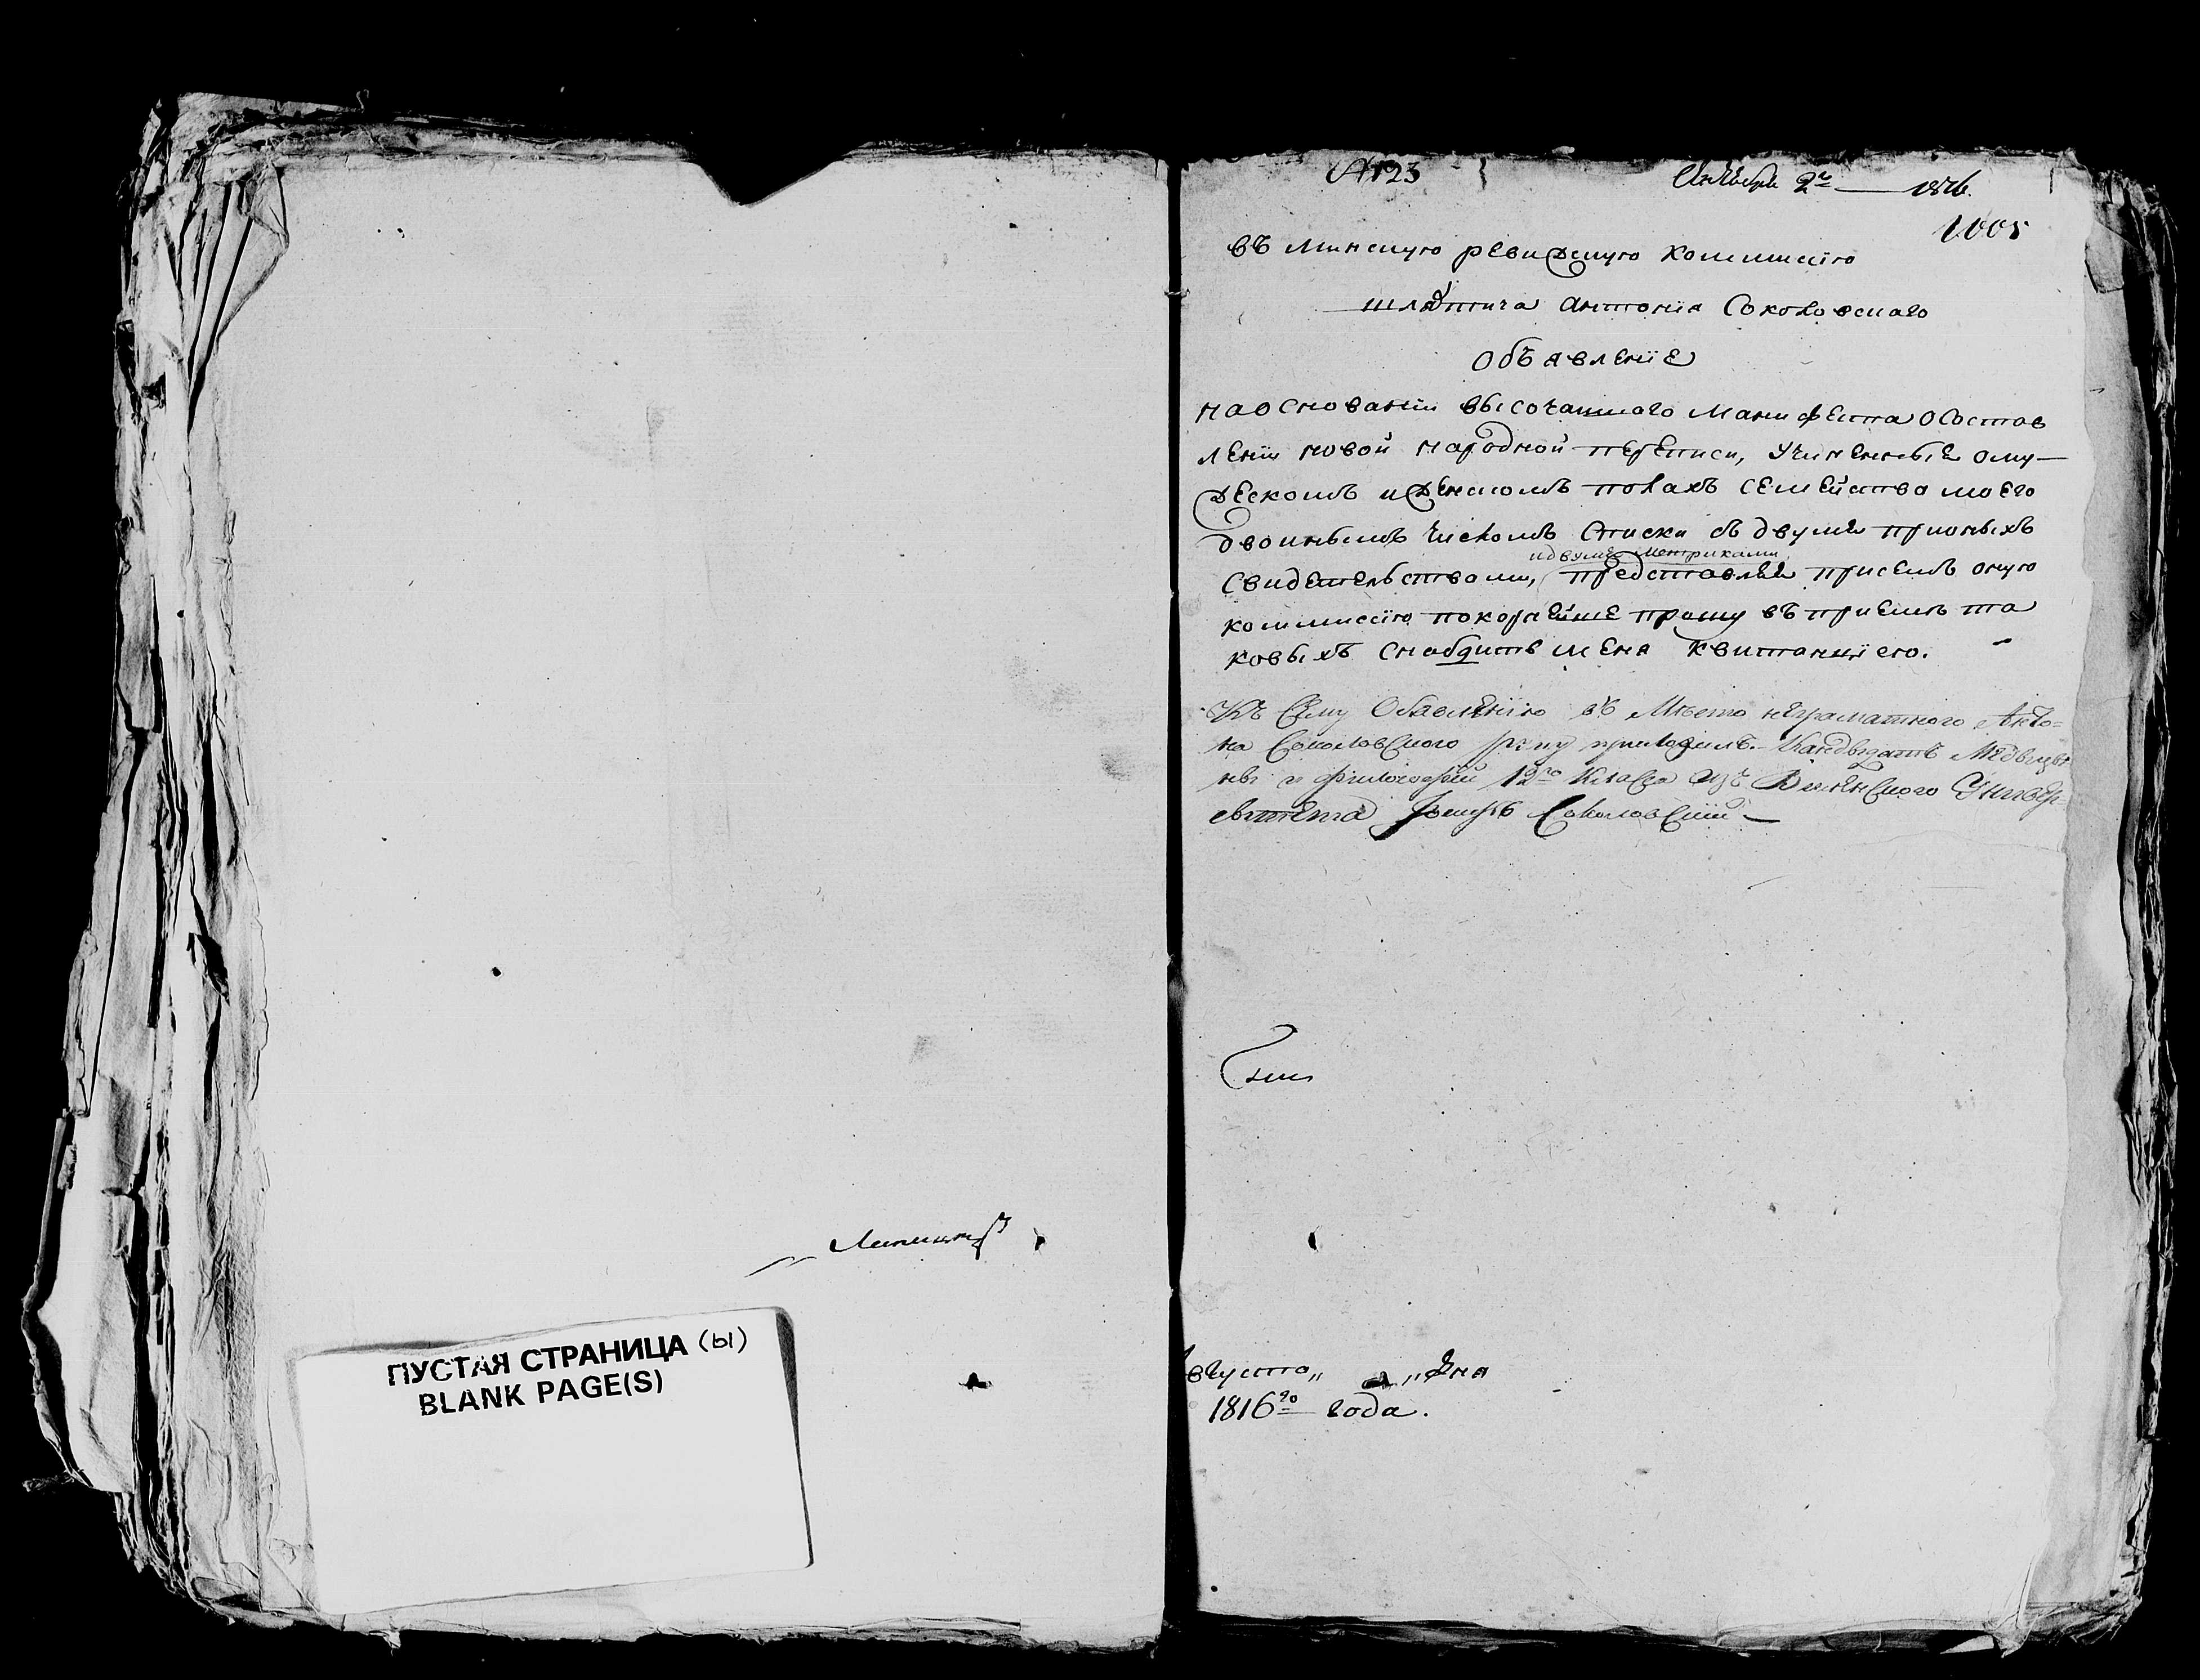 ПУСТАЯ СТРАНИЦА (ы)
BLANK PAGE(S)
№ 123
Октября 2го 1816.
1005
въ Минскую ревизскую Коммиссію
шляхтича Антонія Соколовскаго
Объявленіе
на основаніи высочайшаго Манифеста о состав
леніи новой народной переписи, учиненные о му
жескомъ и женскомъ полахъ семейства моего
двойнымъ числомъ списки съ двумя
и двумя метриками
свидетельствами, представляя при семъ оную
коммиссію покорнейше прошу въ приеме та
ковыхъ снабдить меня квитанціею.
Къ сему Обявленію въ Место неграматного Анто-
на Соколовского руку приложилъ. Кандыдатъ Медыцы
ны и Филозофіи 12го Класса изъ Виленского Универ-
сытета Соколовскій
вгуста „ „ дня
1816го года.